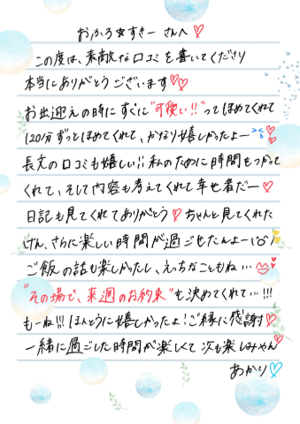 おかろ☆すきー さんへ♡
この度は、素敵な口コミを書いてくださり
本当にありがとうございます♡♡
お出迎えの時にすぐに"可愛い!!"ってほめてくれて
120分ずっとほめてくれて、かなり嬉しかったよー
長文の口コミも嬉しい!!私のために時間をつかって
くれて、そして内容も考えてくれて幸せ者だー♡
日記も見てくれてありがとう♡ちゃんと見てくれた
けん、さらに楽しい時間が過ごせたんよー
ご飯の話も楽しかったし、えっちなこともね…
"その場で、来週のお約束"も決めてくれて…!!!
もーね!!!ほんとうに嬉しかったよ!ご縁に感謝♡
一緒に過ごした時間が楽しくて次も楽しみやん♡
あかり♡